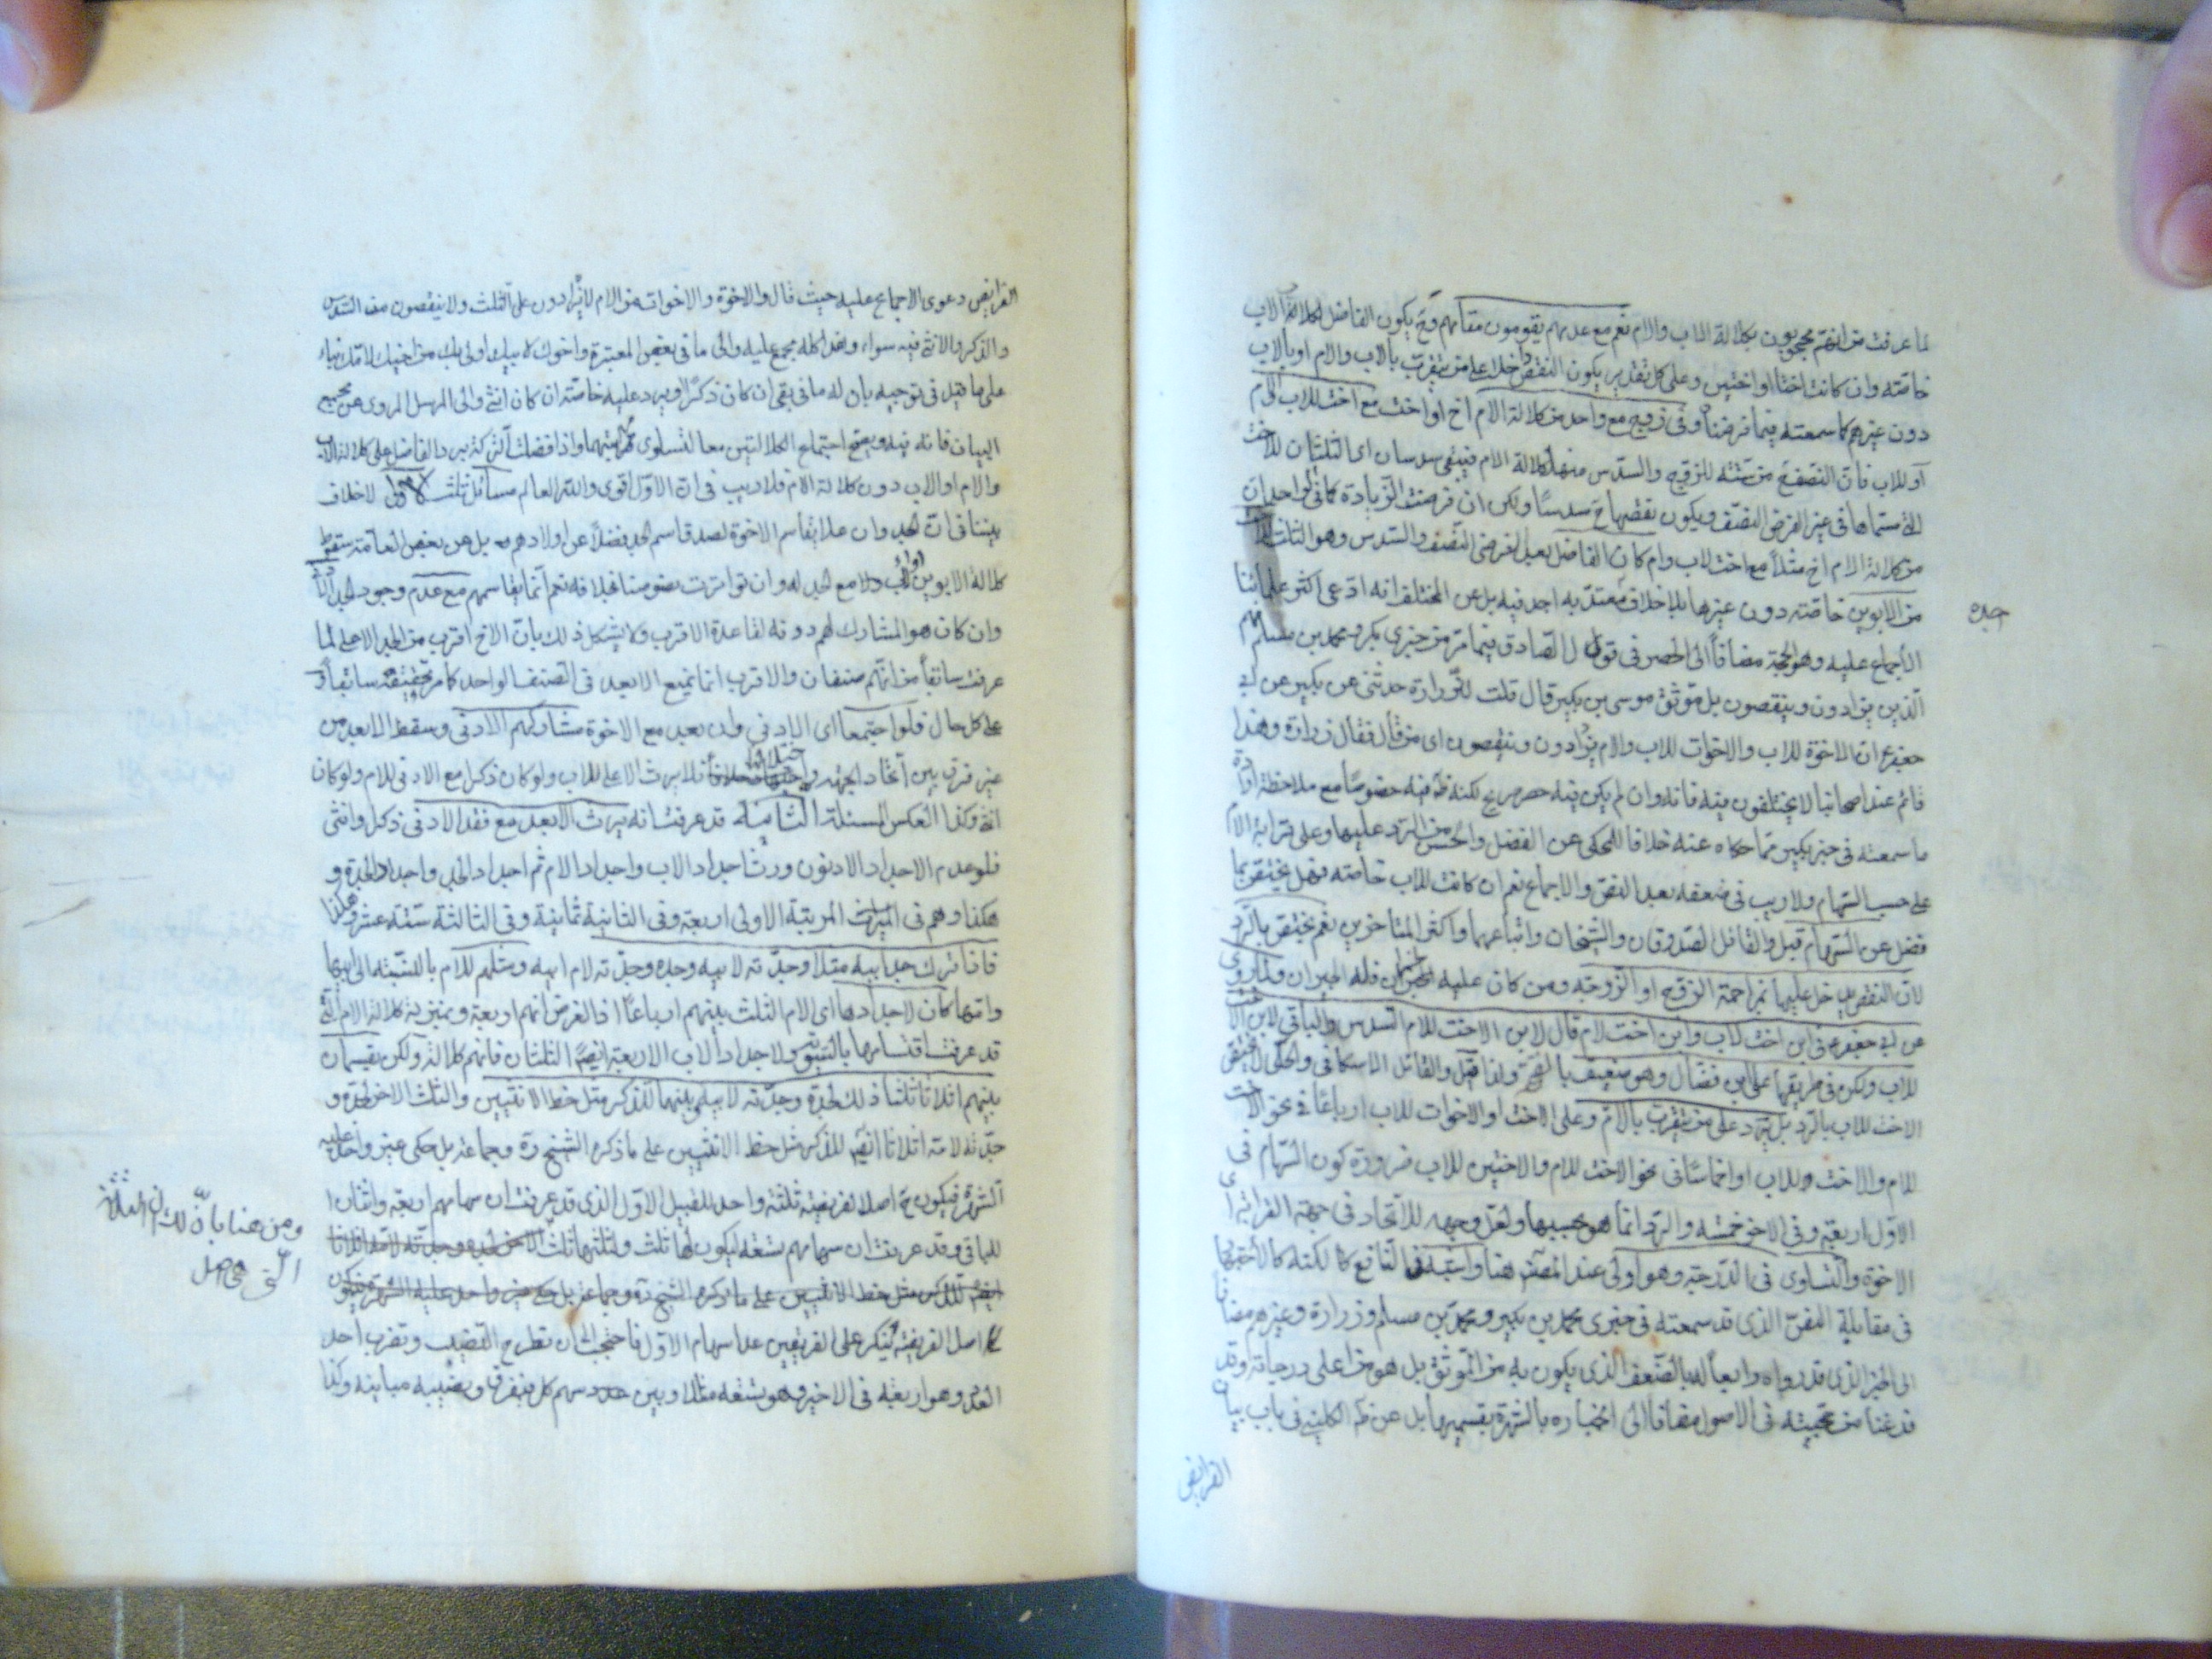 لما عرفت من انهم محجوبون بكلالة الاب والام نعم مع عدمهم يقومون مقامهم وح يكون الفاضل لكلالة الاب
خاصته وان كانت اختا او اختين وعلى كل تقدير يكون النقص داخلا على من يتقرب بالاب والام او بالاب
دون غيرهم كما سمعته فيما فرضنا وفى زوج مع واحد من كلالة الام اخ او اخت مع اخت للاب والام
او للاب فان النصف من ستته للزوج والسدس منها لكلالة الام فيبقى سدسان اى الثلثان للاخت
التى سمتاها فى غير الفرض النصف ويكون نقصها ح سدسا ولكن ان فرضت الزيادة كما فى الواحد ان
من كلالة الام اخ مثلا مع اخت لاب وام كان الفاضل بعد الفرضى النصف والسدس وهو الثلث
من الابوين خاصته دون غيرها بلا خلاف معتد به اجد فيه بل عن المختلف انه ادعى اكثر علمائنا
جده
الاجماع عليه وهو الحجة مضافا الى الحصر فى قول الصادق فيما مر من خبرى بكير ومحمد بن مسلم فهم
الذين يزادون وينقصون بل موثق موسى بن بكير قال قلت لزرارة حدثنى عن بكير عن ابى
جعفر ع ان الاخوة للاب والاخوات للاب والام يزادون وينقصون اى من قال فقال زرارة وهذا
قائم عند اصحابنا لا يختلفون فيه فانه وان لم يكن فيه حصر صريح لكنه ظ فيه خصوصا مع ملاحظة
ما سمعته فى خبر بكير مما حكاه عنه خلافا للمحكى عن الفضل والحسن من الرد عليها وعلى قرابة الام
على حسب السهام ولا ريب فى ضعفه بعد النص والاجماع نعم ان كانت للاب خاصته فهل يختص بما
فضل عن السهام قيل والقائل الصدوقان والشيخان واتباعهما واكثر المتاخرين نعم يختص بالرد
لان النقص يدخل عليها بمزاحمة الزوج او الزوجه ومن كان عليه فله الجبران ولما روى
عن ابى جعفر ع فى ابن اخت لاب وابن اخت لام قال لابن الاخت للام السدس والباقى لابن الاخت
للاب ولكن فى طريقها على ابن فضال وهو ضعيف ولذا قيل والقائل الاسكافى والحلى لا يختص
الاخت للاب بالرد بل يرد على من يتقرب بالام وعلى الاخت او الاخوات للاب ارباعا فى نحو الاخت
للام والاخت للاب او اخماسا فى نحو الاخت للام والاختين للاب ضرورة كون السهام فى
الاول اربعه وفى الاخر خمسته والرد انما هو بحسبها ولعل وجهه للاتحاد فى جهته القرابة اى
الاخوة والتساوى فى الدرجه وهو اولى عند المص هنا واستبده فى النافع كا لكنه كالاجتهاد
فى مقابلة النص الذى قد سمعته فى خبرى محمد بن بكير ومحمد بن مسلم وزرارة وغيرهم مضافا
الى الخبر الذى قد رواه رابعا بالضعف الذى يكون به من الموثق بل هو من اعلى درجاته وقد
فرغنا من حجيته فى الاصول مضافا الى انجباره بالشهرة بقسميها بل عن ظ الكلينى فى باب بيان
الفرايض
الفرايض دعوى الاجماع عليه حيث قال والاخوة والاخوات من الام لا يزادون على الثلث ولا ينقصون من السدس
والذكر والانثى فيه سواء وهذا كله مجمع عليه والى ما فى بعض المعتبرة واخوك لابيك اولى بك من اخيك لامك بناء
على ما قيل فى توجيهه بان له ما فى بقى ان كان ذكرا ويرد عليه خاصته ان كان انثى والى المرسل المروى عن مجمع
البيان فانه فيه ويصح اجتماع الكلالتين معا لتساوى قرابتهما واذا فضلت التركة يرد الفاضل على كلالة الاب
والام او الاب دون كلالة الام فلا ريب فى ان الاول اقوى والله العالم مسائل ثلث الاولى لا خلاف
بيننا فى ان الجد وان علا يقاسم الاخوة لصدق اسم الجد فضلا عن اولادهم بل عن بعض العامة سقوط
كلالة الابوين او الاب مع الجد له وان تواترت نصوصنا بخلافه نعم انما يقاسمهم مع عدم وجود الجد الادنى
وان كان هو المشارك لهم دونه لقاعدة الاقرب ولا يشكل ذلك بان الاخ اقرب من الجد الاعلى لما
عرفت سابقا من انهم صنفان والاقرب انما يمنع الابعد فى الصنف الواحد كما مر تحقيقه سابقا و
على كل حال فلو اجتمعا اى الادنى وان بعد مع الاخوة شاركهم الادنى وسقط الابعد من
غير فرق بين اتحاد الجهة واختلافها فلا يرث الاعلى للاب ولو كان ذكرا مع الادنى للام ولو كان
انثى وكذا العكس المسئلة الثانية قد عرفت انه يرث الابعد مع فقد الادنى ذكرا وانثى
فلو عدم الاجداد الادنون ورث اجداد الاب واجداد الام ثم اجداد الجد واجداد الجدة و
هكذا وهم فى الميراث المرتبة الاولى اربعة وفى الثانية ثمانية وفى الثالثة ستة عشر وهكذا
فاذا ترك جد ابيه مثلا وجدته لابيه وجده وجدته لام ابيه ومثلهم للام بالنسبته الى ابيها
وامها كان لاجدادها اى الام الثلث بينهم ارباعا اذ الفرض انهم اربعة وبمنزلة كلالة الام التى
قد عرفت اقتسامها بالسوية ولاجداد الاب الاربعة ايضا الثلثان فانهم كلالته ولكن يقسمان
بينهم اثلاثا ثلثا ذلك لجده وجدته لابيه بينهما للذكر مثل حظ الانثيين والثلث الاخر لجده و
جدته لامه اثلاثا ايضا للذكر مثل حظ الانثيين على ما ذكره الشيخ ره وجماعة بل حكى غير واحد عليه
الشهرة فيكون ح اصل الفريضة ثلثة واحد للقبيل الاول الذى قد عرفت ان سهامهم اربعة واثنان
للباقى وقد عرفت ان سهامهم تسعه ليكون لها ثلث ولثلثها ثلث الاخر لجده وجدته لامه اثلاثا
ايضا للذكر مثل حظ الانثيين على ما ذكره الشيخ ره وجماعة بل حكى غير واحد عليه الشهرة فيكون
ومن هنا بان لك ان الثلاثة
التى هى اصل
اصل الفريضة ينكسر على الفريقين عدا سهام الاول فاحتجت الى ان تطرح النصيب وتضرب احد
العدد وهو اربعة فى الاخر وهو تسعه مثلا وبين عدد سهم كل فريق ونصيبه مباينه وكذا